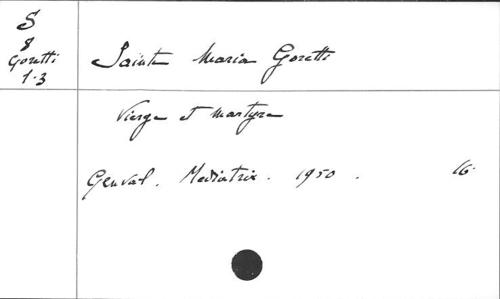 S
8
Goretti
1-3
Sainte Maria Goretti
Vierge et martyre
Genval. Mediatrix. 1950. 16.